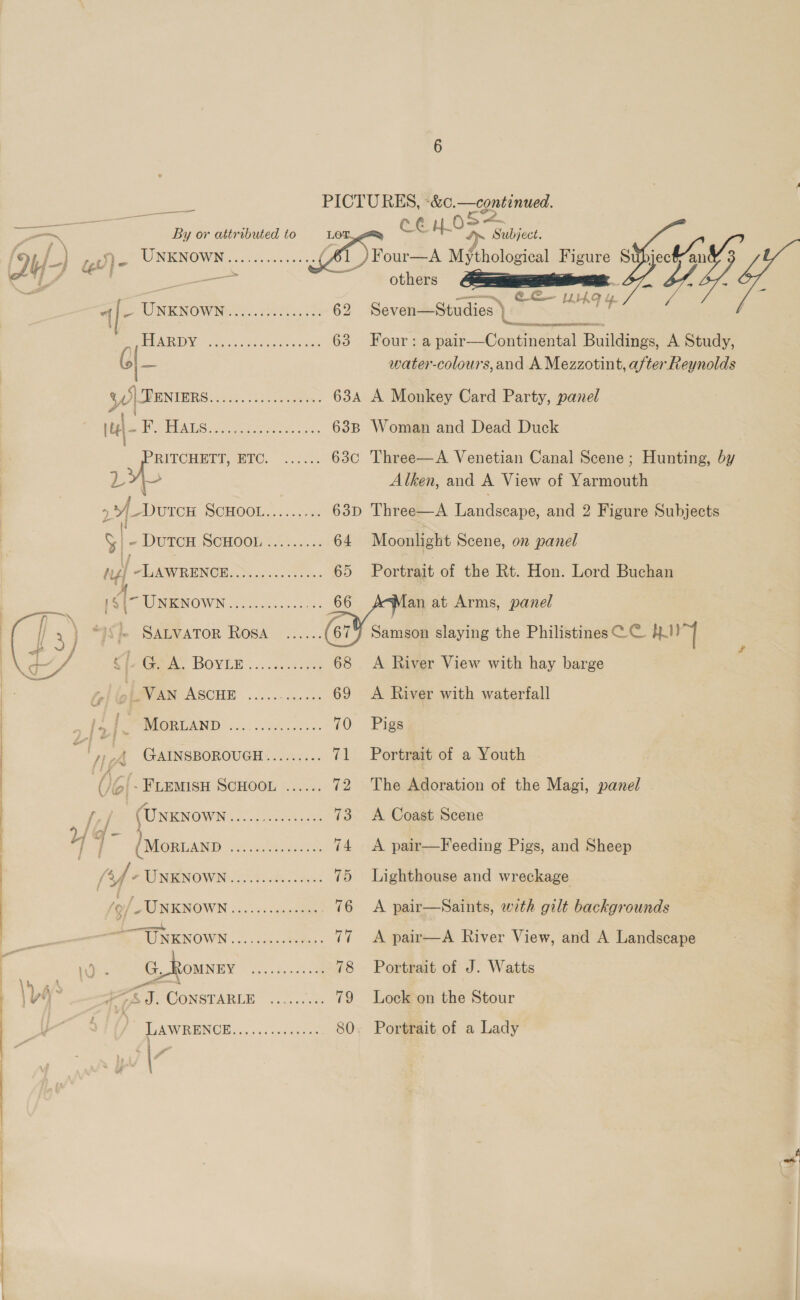 6
PICTURES, &c.—continued.
By or attributed to LOT Subject.
UNKNOWN............ 61 Four—A Mythological Figure Subject and 3
others
UNKNOWN............ 62 Seven—Studies
HARDY ............ 63 Four: a pair—Continental Buildings, A Study,
water-colours, and A Mezzotint, after Reynolds
TENIERS............ 63A A Monkey Card Party, panel
F. HALS............ 63B Woman and Dead Duck
PRITCHETT, ETC. ...... 63C Three—A Venetian Canal Scene; Hunting, by
Alken, and A View of Yarmouth
DUTCH SCHOOL......... 63D Three—A Landscape, and 2 Figure Subjects
DUTCH SCHOOL......... 64 Moonlight Scene, on panel
LAWRENCE............ 65 Portrait of the Rt. Hon. Lord Buchan
UNKNOWN............ 66 A Man at Arms, panel
SALVATOR ROSA ...... 67 Samson slaying the Philistines
G. A. BOYLE............ 68 A River View with hay barge
VAN ASCHE ............ 69 A River with waterfall
MORLAND ............ 70 Pigs
GAINSBOROUGH......... 71 Portrait of a Youth
FLEMISH SCHOOL ...... 72 The Adoration of the Magi, panel
UNKNOWN............ 73 A Coast Scene
MORLAND ............ 74 A pair—Feeding Pigs, and Sheep
UNKNOWN............ 75 Lighthouse and wreckage
UNKNOWN............ 76 A pair—Saints, with gilt backgrounds
UNKNOWN............ 77 A pair—A River View, and A Landscape
G. ROMNEY ............ 78 Portrait of J. Watts
J. CONSTABLE ......... 79 Lock on the Stour
LAWRENCE............ 80 Portrait of a Lady